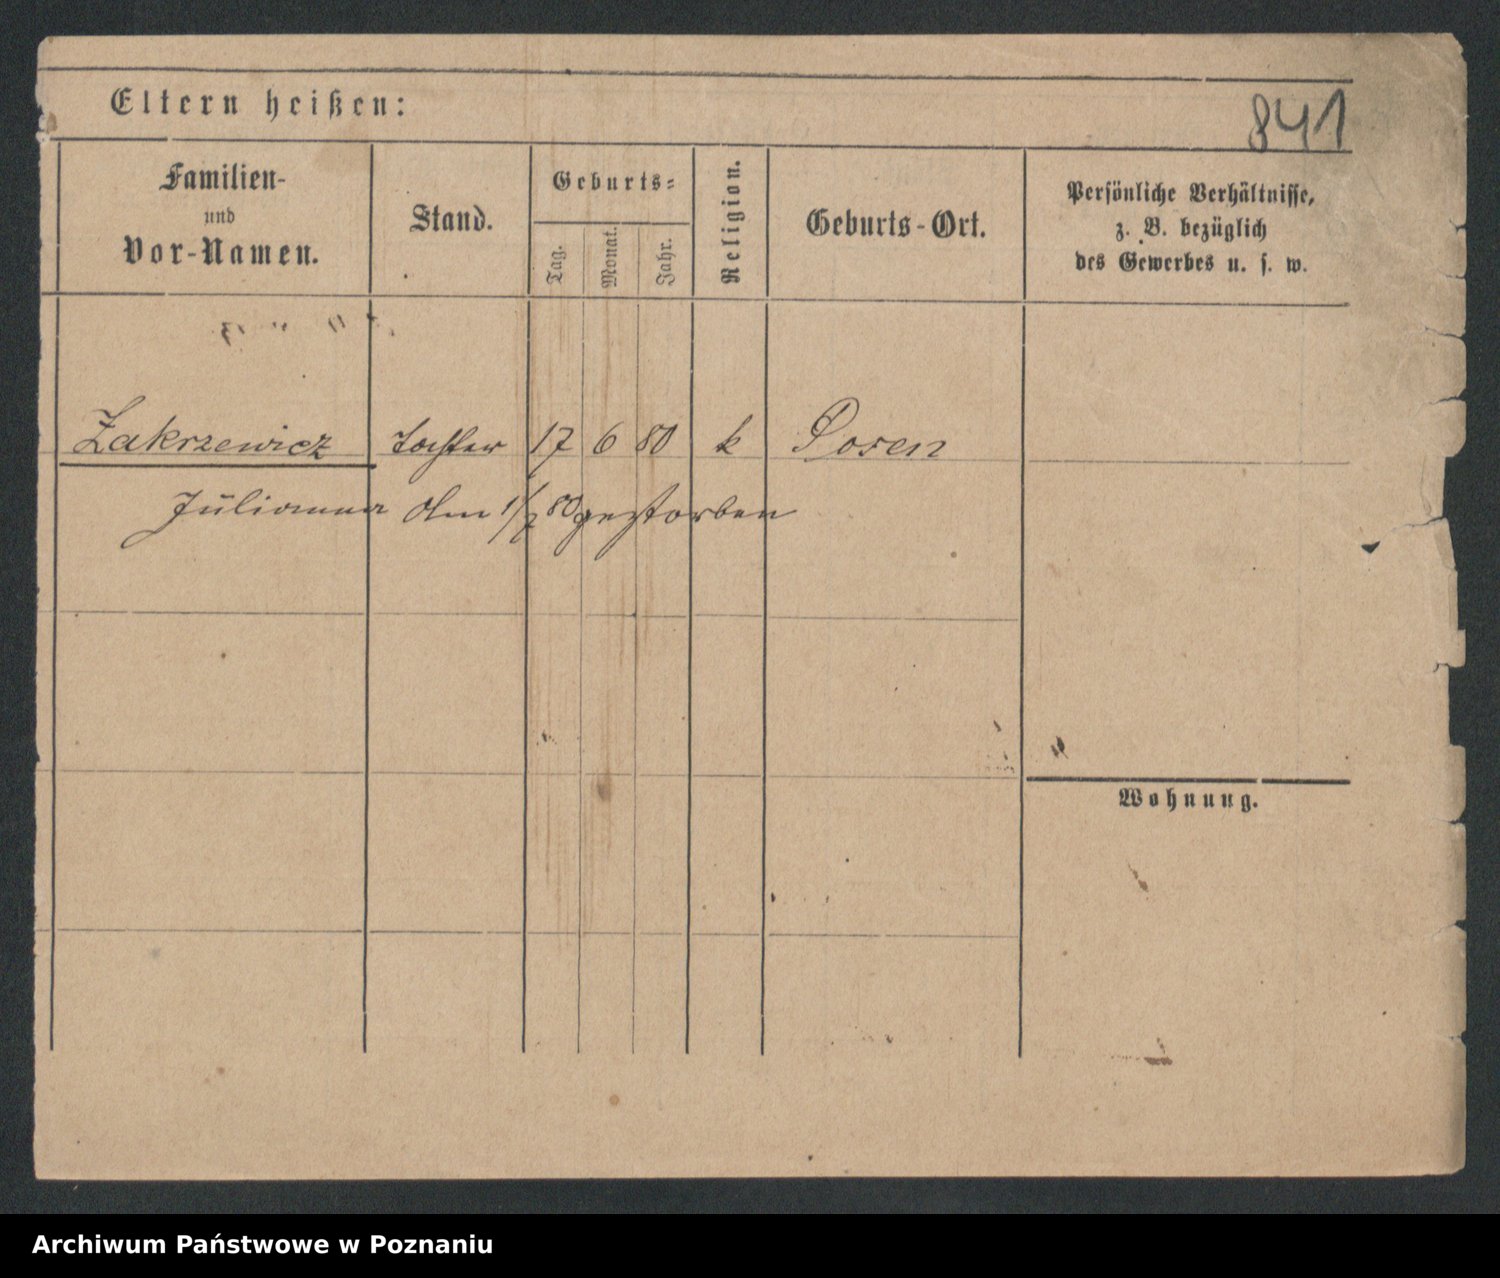 Eltern heißen:
841
Familien-
und
Vor-Namen.
Stand.
Geburts-
Tag.
Monat.
Jahr.
Religion.
Geburts-Ort.
Persönliche Verhältnisse,
z. B. bezüglich
des Gewerbes u. s. w.
Zakrzewicz Tochter 17 6 80 k Posen
Julianna Am 1/7 80 gestorben
Wohnung.
Archiwum Państwowe w Poznaniu